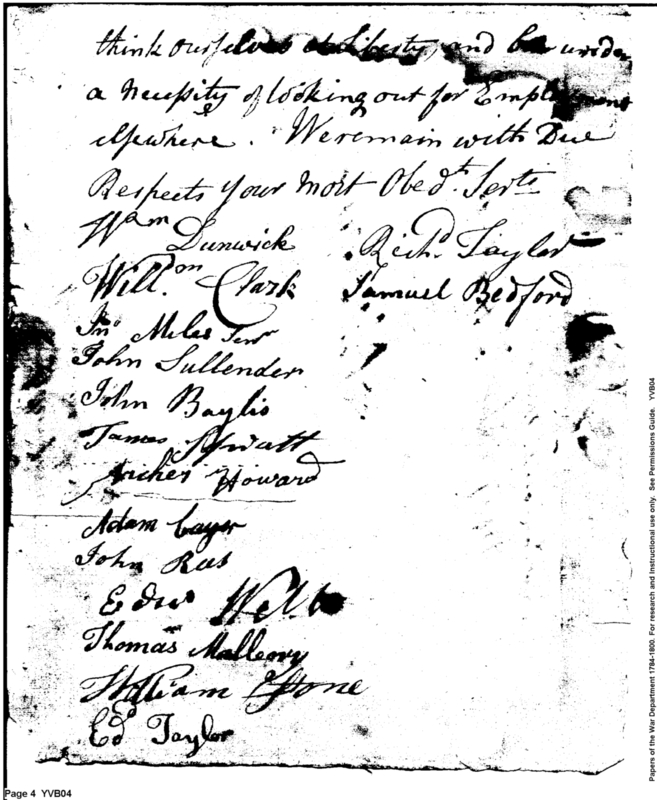 think ourselves at Liberty, and be under
a necessity of looking out for Employment
elsewhere. We remain with Due
Respects your most Obedt. Servts
Wam Dunwick
Richd. Taylor
Willon. Clark
Samuel Bedford
Jno Miles Senr
John Sullender
John Baylis
James
Archer Howard
Adam
John
Edwd
Thomas Malleory
William
Ed. Taylor
Page 4 YVB04
Papers of the War Department 1784-1800. For research and instructional use only. See Permissions Guide. YVB04